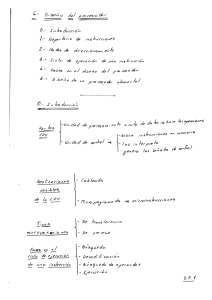 6.- Diseño del procesador
0.- Introducción
1.- Repertorio de instrucciones
2.- Modos de direccionamiento
3.- Ciclo de ejecución de una instrucción
4.- Fases en el diseño del procesador
5.- Diseño de un procesador elemental
0.- Introducción
Unidad de procesamiento o ruta de datos
Partes
CPU
Unidad de control
busca instrucciones en memoria
las interpreta
genera las señales de control
Realizaciones
posibles
de la CPU
Cableada
Microprogramada → microinstrucciones
Tipos
microoperaciones
De transferencia
De proceso
Fases en el
ciclo de ejecución
de una instrucción
Búsqueda
Decodificación
Búsqueda de operandos
Ejecución